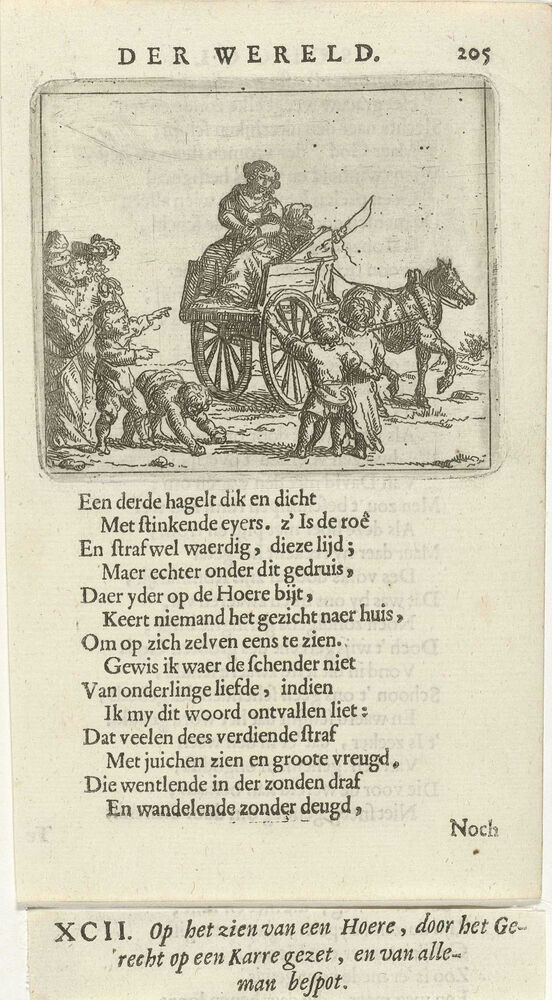 DER WERELD. 205
Een derde hagelt dik en dicht
Met ſtinkende eyers. z' Is de roê
En ſtraf wel waerdig, dieze lijd;
Maer echter onder dit gedruis,
Daer yder op de Hoere bijt,
Keert niemand het gezicht naer huis,
Om op zich zelven eens te zien.
Gewis ik waer de ſchender niet
Van onderlinge liefde, indien
Ik my dit woord ontvallen liet:
Dat veelen dees verdiende ſtraf
Met juichen zien en groote vreugd,
Die wentlende in der zonden draf
En wandelende zonder deugd,
Noch
XCII. Op het zien van een Hoere, door het Ge-
recht op een Karre gezet, en van alle-
man beſpot.